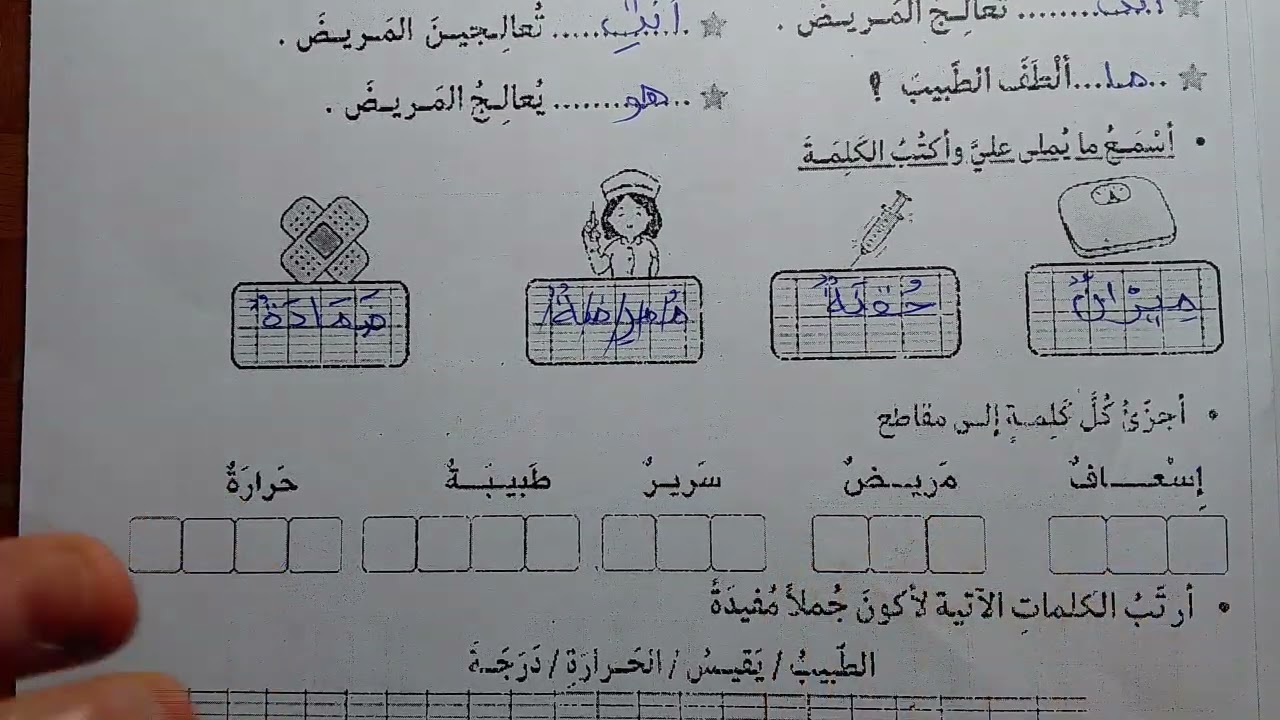 أنت ........ تُعالِجُ المَريضَ .
أنتِ ..... تُعالِجينَ المَريضَ .
..ما... ألْطَفَ الطَّبيبَ ؟
..هو....... يُعالِجُ المَريضَ .
• أسْمَعُ ما يُملى عليَّ وأكتُبُ الكَلِمَةَ
ميزانٌ حُقنَةٌ مُمرِضةٌ ضَمَادَةٌ
• أجزّئُ كُلَّ كَلِمةٍ إلى مقاطع
إسْعافٌ مَريضٌ سَريرٌ طَبيبَةٌ حَرارَةٌ
• أرتَّبُ الكلماتِ الآتية لأكونَ جُملاً مُفيدَةً
الطَّبيبُ / يَقيسُ / الحَرارَةِ / دَرَجَةَ